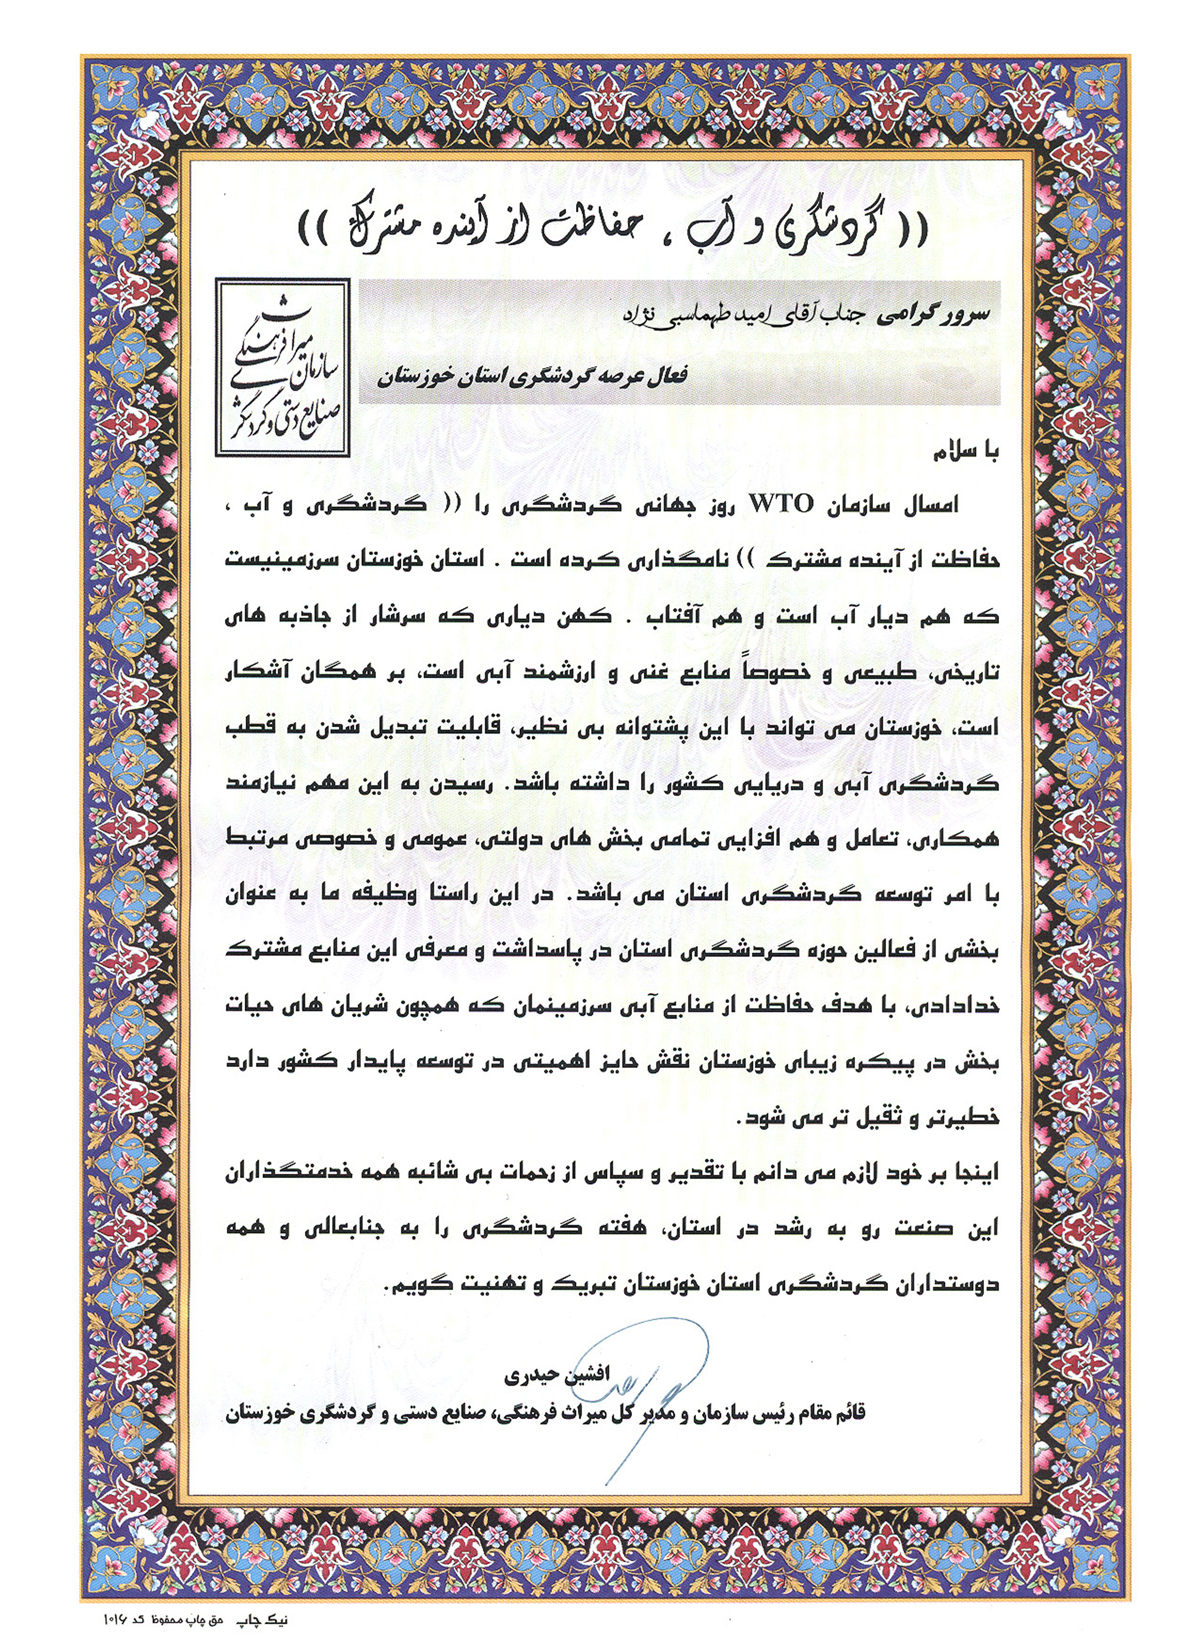 (( گردشگری و آب ، حفاظت از آینده مشترک ))
سرور گرامی جناب آقای امید طهماسبی نژاد
فعال عرصه گردشگری استان خوزستان
سازمان میراث فرهنگی
صنایع دستی و گردشگری
با سلام
امسال سازمان WTO روز جهانی گردشگری را (( گردشگری و آب ،
حفاظت از آینده مشترک )) نامگذاری کرده است . استان خوزستان سرزمینیست
که هم دیار آب است و هم آفتاب . کهن دیاری که سرشار از جاذبه های
تاریخی، طبیعی و خصوصاً منابع غنی و ارزشمند آبی است، بر همگان آشکار
است، خوزستان می تواند با این پشتوانه بی نظیر، قابلیت تبدیل شدن به قطب
گردشگری آبی و دریایی کشور را داشته باشد. رسیدن به این مهم نیازمند
همکاری، تعامل و هم افزایی تمامی بخش های دولتی، عمومی و خصوصی مرتبط
با امر توسعه گردشگری استان می باشد. در این راستا وظیفه ما به عنوان
بخشی از فعالین حوزه گردشگری استان در پاسداشت و معرفی این منابع مشترک
خدادادی، با هدف حفاظت از منابع آبی سرزمینمان که همچون شریان های حیات
بخش در پیکره زیبای خوزستان نقش حایز اهمیتی در توسعه پایدار کشور دارد
خطیرتر و ثقیل تر می شود.
اینجا بر خود لازم می دانم با تقدیر و سپاس از زحمات بی شائبه همه خدمتگذاران
این صنعت رو به رشد در استان، هفته گردشگری را به جنابعالی و همه
دوستداران گردشگری استان خوزستان تبریک و تهنیت گویم.
افشین حیدری
قائم مقام رئیس سازمان و مدیر کل میراث فرهنگی، صنایع دستی و گردشگری خوزستان
نیک چاپ حق چاپ محفوظ کد ۱۰۱۶